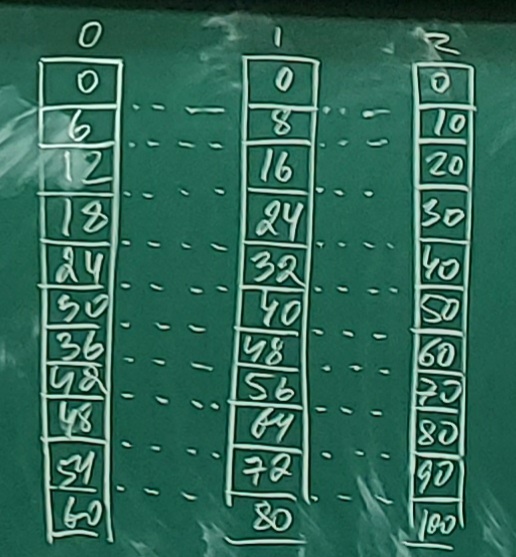 0 1 2
0 0 0
6 8 10
12 16 20
18 24 30
24 32 40
30 40 50
36 48 60
42 56 70
48 64 80
54 72 90
60 80 100